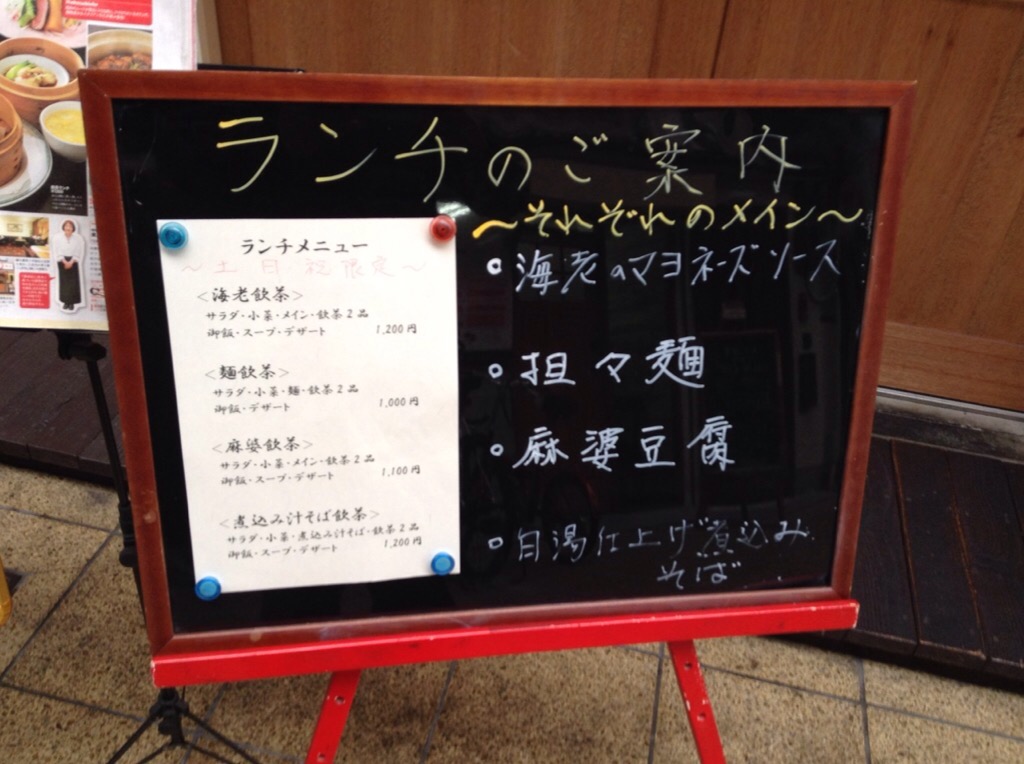 ランチのご案内
ランチメニュー
～土日祝限定～
<海老飲茶>
サラダ・小菜・メイン・飲茶2品
御飯・スープ・デザート 1,200円
<麺飲茶>
サラダ・小菜・麺・飲茶2品
御飯・デザート 1,000円
<麻婆飲茶>
サラダ・小菜・メイン・飲茶2品
御飯・スープ・デザート 1,100円
<煮込み汁そば飲茶>
サラダ・小菜・煮込み汁そば・飲茶2品
御飯・スープ・デザート 1,200円
～それぞれのメイン～
○海老のマヨネーズソース
○担々麺
○麻婆豆腐
○白湯仕上げ煮込み
そば